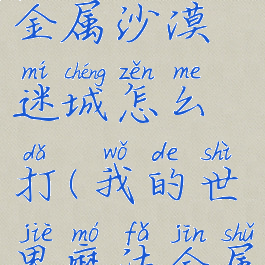 金属沙漠
mí chéng zěn me
迷城怎么
dǎ wǒ de shì
打(我的世
jiè mó fǎ jīn shǔ
界魔法金属